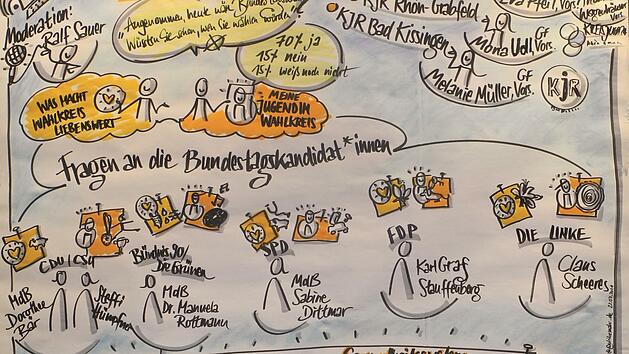 Moderation:
Ralf Sauer
"Angenommen, heute wär Bundestagswahl
Wüssten Sie schon, wen Sie wählen würden?"
70% ja
15% nein
15% weiß noch nicht
KJR Rhön-Grabfeld
KJR Bad Kissingen
Vors.
Mona Voll, Vors.
GF
Melanie Müller, Vors.
KJR
WAS MACHT
WAHLKREIS
LIEBENSWERT
MEINE
JUGEND IN
WAHLKREIS
Fragen an die Bundestagskandidat*innen
CDU/CSU
MdB
Dorothee
Bär
Steffi
Hümpfner
Bündnis 90/
Die Grünen
MdB
Dr. Manuela
Rottmann
SPD
MdB
Sabine
Dittmar
FDP
Karl Graf
Stauffenberg
DIE LINKE
Claus
Scheeres